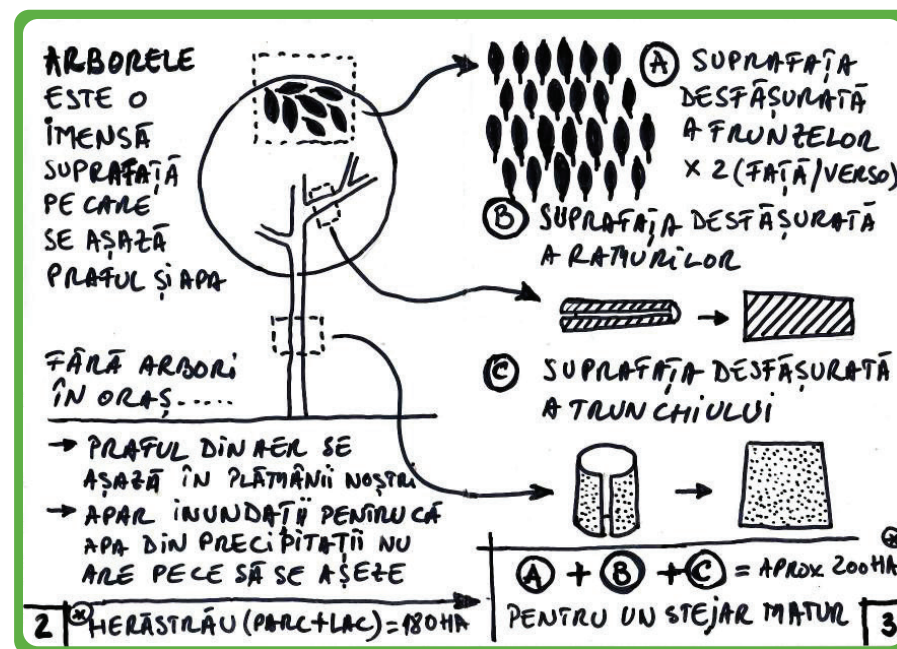 ARBORELE
ESTE O
IMENSĂ
SUPRAFAȚĂ
PE CARE
SE AȘAZĂ
PRAFUL ȘI APA
FĂRĂ ARBORI
ÎN ORAȘ.....
→ PRAFUL DIN AER SE
AȘAZĂ ÎN PLĂMÂNII NOȘTRI
→ APAR INUNDAȚII PENTRU CĂ
APA DIN PRECIPITAȚII NU
ARE PE CE SĂ SE AȘEZE
2 * HERĂSTRĂU (PARC+LAC) = 180 HA
A SUPRAFAȚA
DESFĂȘURATĂ
A FRUNZELOR
× 2 (FAȚĂ/VERSO)
B SUPRAFAȚA DESFĂȘURATĂ
A RAMURILOR
C SUPRAFAȚA DESFĂȘURATĂ
A TRUNCHIULUI
A + B + C = APROX 200 HA *
PENTRU UN STEJAR MATUR 3